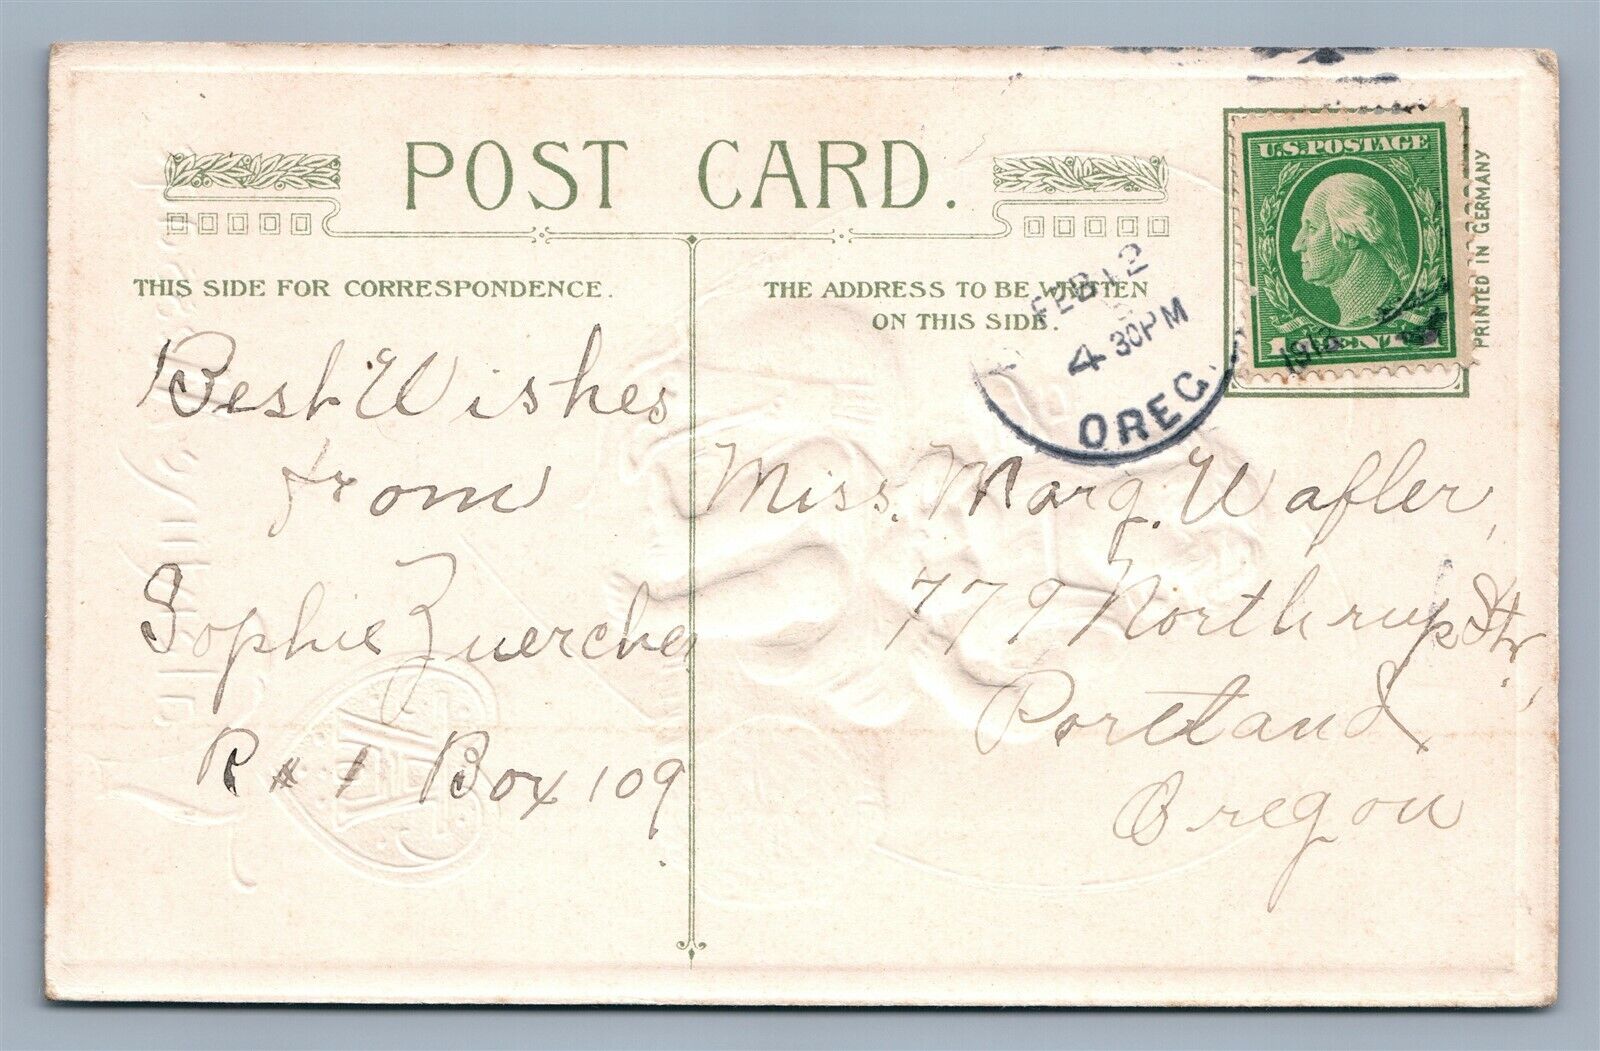 POST CARD.
THIS SIDE FOR CORRESPONDENCE.
THE ADDRESS TO BE WRITTEN
ON THIS SIDE.
FEB 12
4 30PM
OREG.
U.S. POSTAGE
PRINTED IN GERMANY
Best Wishes
from
Sophie Zuercher
R # 1 Box 109
Miss. Marg. Wafler,
779 Northrup Str,
Portland
Oregon